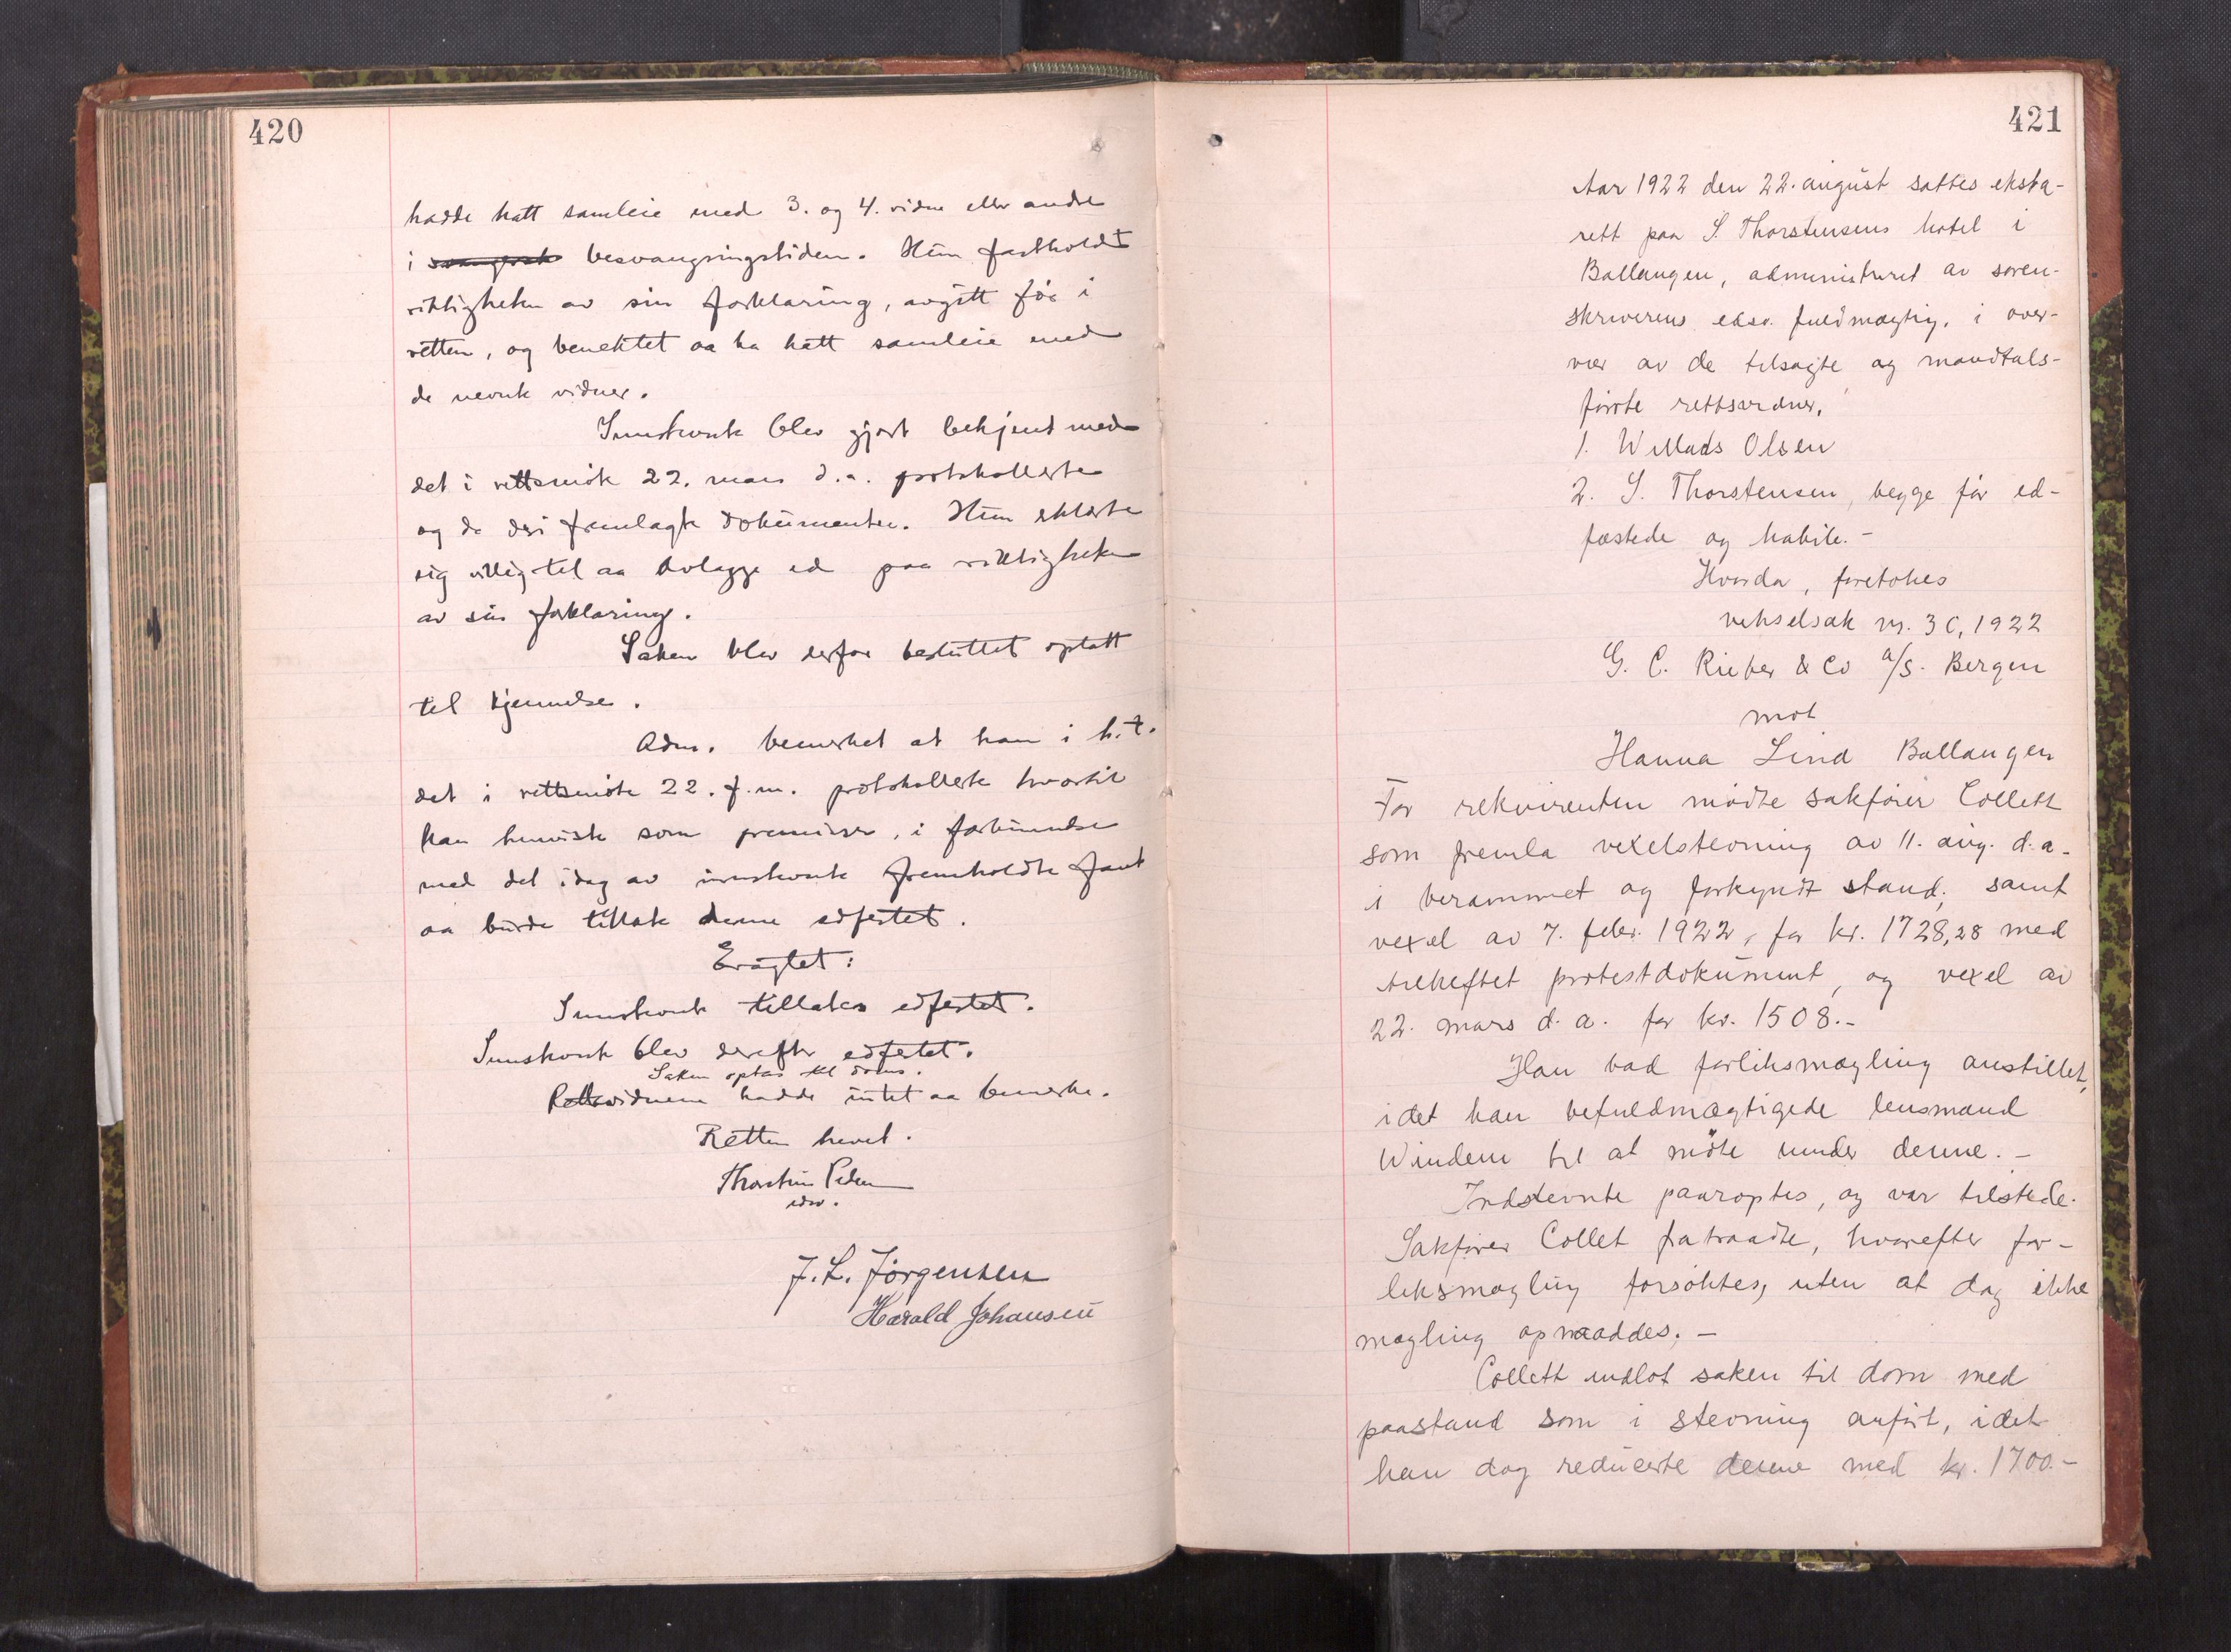 420
hadde hatt samleie med 3. og 4. vidne eller andre
i svangersk besvangringstiden. Hun fastholdt
riktigheten av sin forklaring, avgitt før i
retten, og benektet aa ha hatt samleie med
de nevnte vidner.
Innstevnte blev gjort bekjent med
det i rettsmøte 22. mars d.a. protokollerte
og de deri fremlagte dokumenter. Hun erklærte
sig villig til aa avlægge ed paa riktigheten
av sin forklaring.
Saken blev derfor besluttet optatt
til kjennelse.
Adm. bemerket at han i h.t.
det i rettsmøte 22. f.m. protokollerte hvortil
kan henvises som premisser, i forbinnelse
med det idag av innstevnte fremholdte fant
aa burde tillate denne edfestet.
Eragtet:
Innstevnte tillates edfestet.
Innstevnte blev derefter edfestet.
Saken optas til doms.
Rettsvidnene hadde intet aa bemerke.
Retten hevet.
Thorstein
edsv.
J. L. Jørgensen
Harald Johansen
421
Aar 1922 den 22. august sattes ekstra-
rett paa S. Thorstensens hotel i
Ballangen, administreret av soren-
skriverens edsv. fuldmægtig, i over-
vær av de tilsagte og mandtals-
førte rettsvidner,
1. Willads Olsen
2. S. Thorstensen, begge før ed-
fæstede og habile. -
Hvorda, foretokes
vekselsak nr. 3 C, 1922
G. C. Rieber & Co a/s. Bergen
mot
Hanna Lind Ballangen
For rekvirenten mødte sakfører Collett
som fremla vexelstevning av 11. aug. d.a.
i berammet og forkyndt stand, samt
vexel av 7. febr. 1922, for kr. 1728,28 med
tilheftet protestdokument, og vexel av
22. mars d.a. for kr. 1508.-
Han bad forliksmægling anstillet,
idet han befuldmægtigede lensmand
Windem til at møte under denne. -
Indstevnte paaroptes, og var tilstede.
Sakfører Collet fratraadte, hvorefter for-
liksmægling forsøktes, uten at dog ikke
mægling opnaaddes. -
Collett indlot saken til dom med
paastand som i stevning anført, idet
han dog reducerte denne med kr. 1700.-